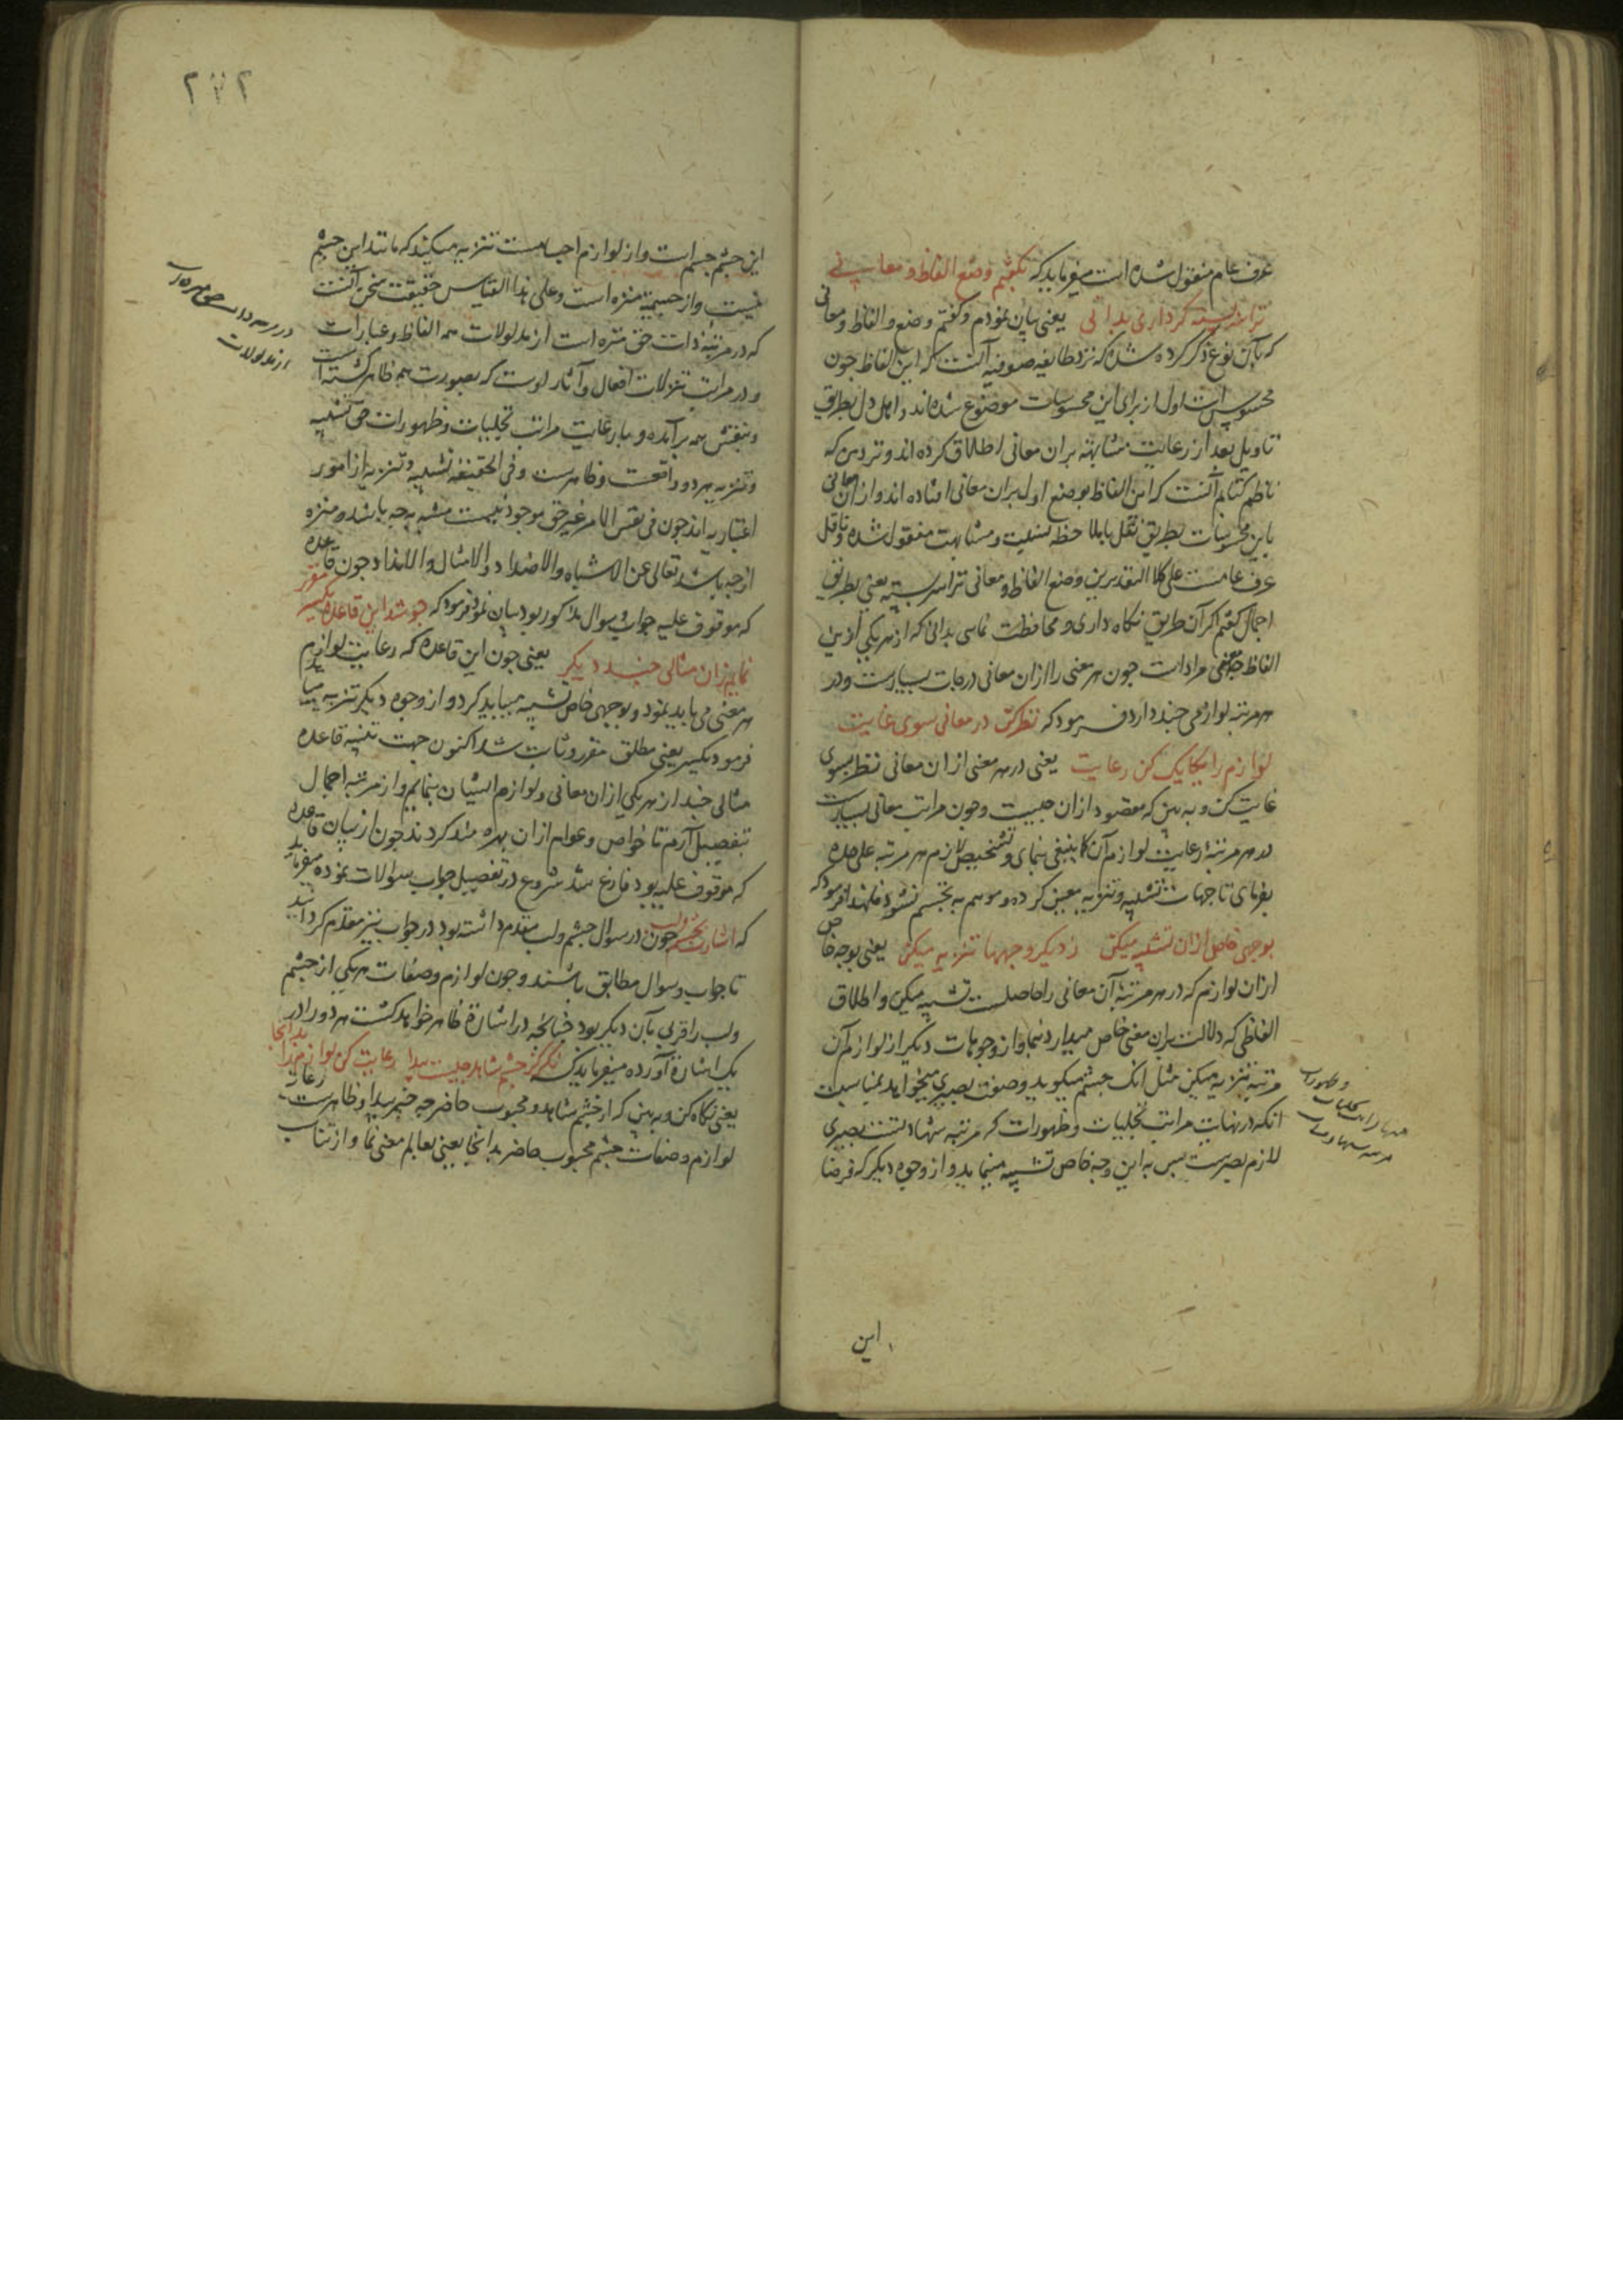 عرف عام منقول شده است میفرماید که بگفتم وضع الفاظ و معانی
ترا سربسته گر داری بدانی یعنی بیان نمودم و گفتم وضع الفاظ و معانی
که بآن نوع ذکر کرده شد که نزد طایفه صوفیه آنست که این الفاظ چون
محسوس است اول از برای این محسوسات موضوع شده‌اند و اهل دل بطریق
تاویل بعد از رعایت مشابهة بر آن معانی اطلاق کرده‌اند و نزد من که
ناظم کتابم آنست که این الفاظ بوضع اول بر آن معانی افتاده‌اند و از آن معانی
باین محسوسات بطریق نقل با ملاحظه نسبت و مشابهت منقول شده و ناقل
عرف عامست علی کلا التقدیرین وضع الفاظ و معانی ترا سربسته یعنی بطریق
اجمال گفتم اگر آن طریق نگاه داری و محافظت نمایی بدانی که از هر یکی ازین
الفاظ چه معنی مراد است چون هر معنی را از آن معانی درجات بسیارست و در
هر مرتبه لوازمی چند دارد فرمود که نظر کن در معانی سوی غایت
لوازم را یکایک کن رعایت یعنی در هر معنی از آن معانی نظر بسوی
غایت کن و به بین که مقصود از آن چیست و چون مراتب معانی بسیارست
در هر مرتبه رعایت لوازم آن کما ینبغی بنمای و تشخیص لازم هر مرتبه علی حده
بفرمای تا جهات تشبیه و تنزیه معین کرده و موهم به تجسم نشود فلهذا فرمود که
بوجهی خاص از آن تشبیه میکن ز دیگر وجهها تنزیه میکن یعنی بوجه خاص
از آن لوازم که در هر مرتبه آن معانی را حاصلست تشبیه میکن و اطلاق
الفاظی که دلالت بر آن معنی خاص میدارد بنما و از وجوهات دیگر از لوازم آن
مرتبه تنزیه میکن مثل آنک چشم میگوید و صفت بصیری میخواهد بمناسبت
آنکه در نهایت مراتب تجلیات و ظهورات که مرتبه شهادتست بصیری
لازم بصرست پس به این وجه خاص تشبیه مینماید و از وجوه دیگر که فرضا
این
۲۷۲
این چشم جسم است و از لوازم اجسامست تنزیه میکند که مانند این چشم
نیست و از جسمیة منزه است و علی هذا القیاس حقیقت سخن آنست
که در مرتبه ذات حق منزه است از مدلولات همه الفاظ و عبارات
و در مراتب تنزلات افعال و آثار اوست که بصورت همه ظاهر گشته است
و بنقش همه برآمده و با رعایت مراتب تجلیات و ظهورات حق تشبیه
و تنزیه هر دو واقعست و ظاهرست و فی الحقیقة تشبیه و تنزیه از امور
اعتباریه‌اند چون فی نفس الامر غیر حق موجود نیست مشبه به چه باشد و منزه
از چه باشد تعالی عن الاشباه والاضداد والامثال والانداد چون قاعده
که موقوف علیه جواب سوال مذکور بود بیان نمود فرمود که چو شد این قاعده یکسر مقرر
نمایم زان مثالی چند دیگر یعنی چون این قاعده که رعایت لوازم
هر معنی می‌باید نمود و بوجهی خاص تشبیه میباید کرد و از وجوه دیگر تنزیه میباید
فرمود یکسر یعنی مطلق مقرر و ثابت شد اکنون جهت تنبیه قاعده
مثالی چند از هر یکی از آن معانی و لوازم ایشان بنمایم و از مرتبه اجمال
بتفصیل آرم تا خواص و عوام از آن بهره مند گردند چون از بیان قاعده
که موقوف علیه بود فارغ شد شروع در تفصیل جواب سوالات نموده میفرماید
که اشارت بچشم و لب چون در سوال چشم و لب مقدم داشته بود در جواب نیز مقدم گردانید
تا جواب و سوال مطابق باشند و چون لوازم و صفات هر یکی از چشم
و لب را قربی بآن دیگر بود چنانچه در اشارة ظاهر خواهد گشت هر دو را در
یک اشارة آورده میفرماید که نگر کز چشم شاهد چیست پیدا رعایت کن لوازم را بدانجا
یعنی نگاه کن و به بین که از چشم شاهد و محبوب حاضر چه چیز پیدا و ظاهرست رعایت
لوازم و صفات چشم محبوب حاضر بدانجا یعنی بعالم معنی نما و از تناسب